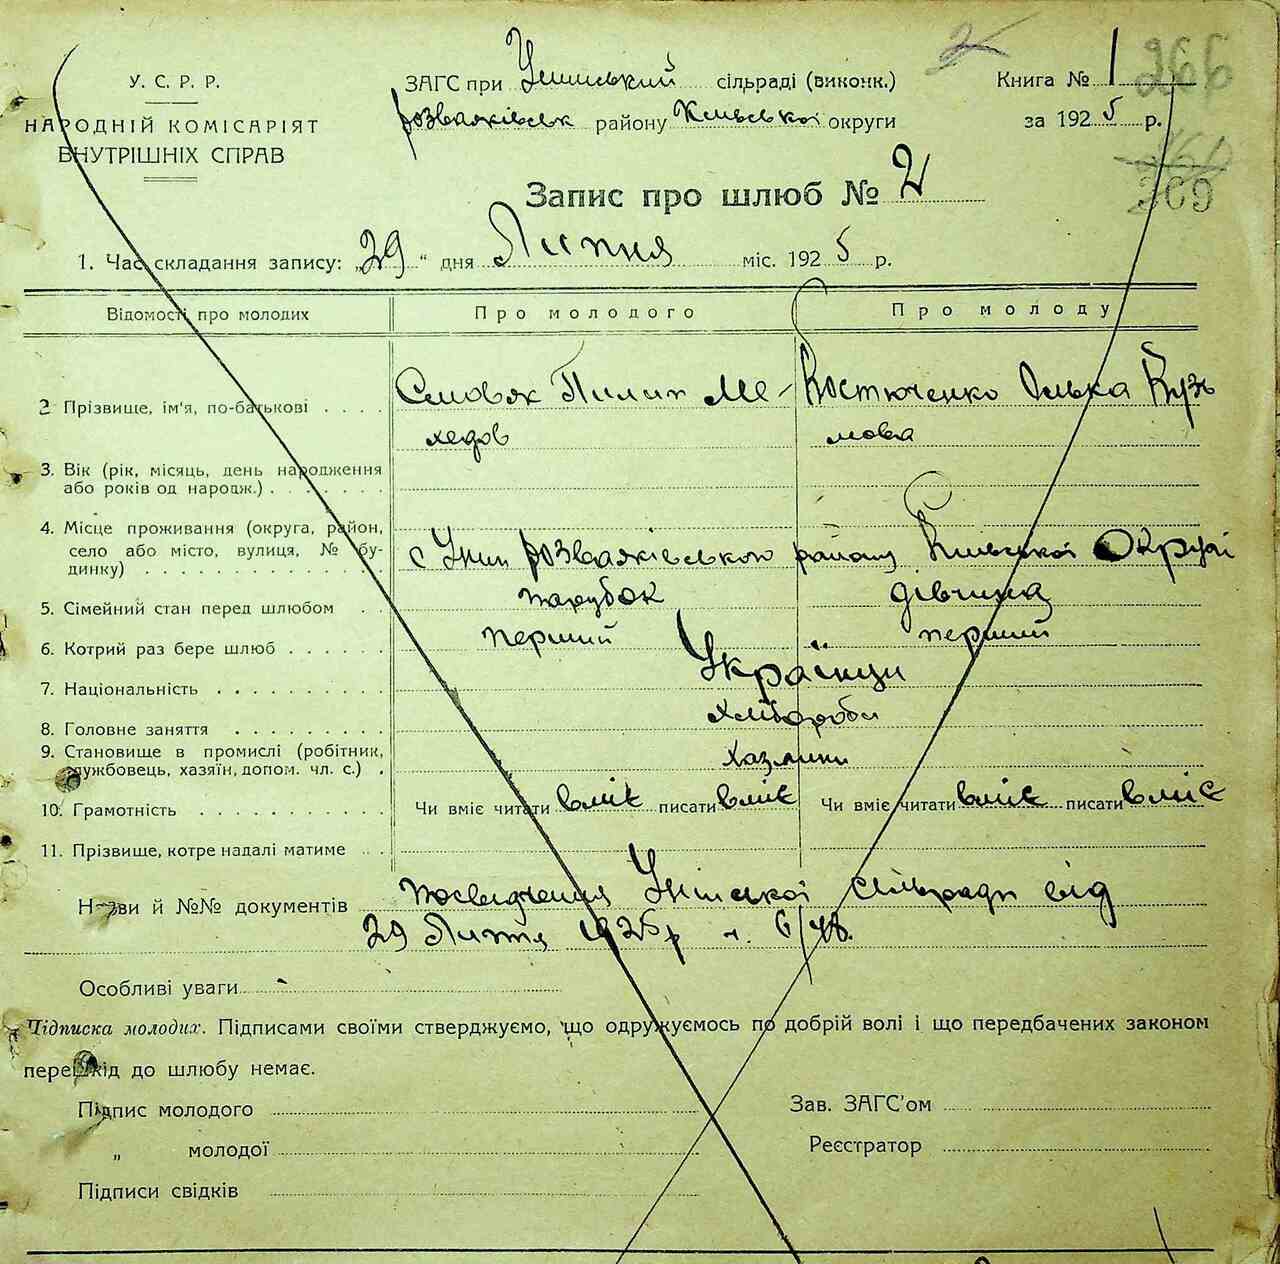 У. С. Р. Р.
НАРОДНІЙ КОМІСАРІЯТ
ВНУТРІШНІХ СПРАВ
ЗАГС при сільраді (виконк.)
району Київської округи
Книга № 1
за 1925 р.
Запис про шлюб № 2
1. Час складання запису: „29“ дня Липня міс. 1925 р.
Відомості про молодих
Про молодого
Про молоду
2 Прізвище, ім'я, по-батькові Пилип Ме-
хедов
Костюченко Олька Кузь
мова
3. Вік (рік, місяць, день народження
або років од народж.)
4. Місце проживання (округа, район,
село або місто, вулиця, № бу-
динку) с району Київської Округи
5. Сімейний стан перед шлюбом парубок дівчина
6. Котрий раз бере шлюб перший перший
7. Національність Українци
8. Головне заняття хлібороби
9. Становище в промислі (робітник,
службовець, хазяїн, допом. чл. с.)
10. Грамотність Чи вміє читати вміє писати вміє Чи вміє читати вміє писати вміє
11. Прізвище, котре надалі матиме
Назви й №№ документів посвідчення сільради від
29 Липня 1925р
Особливі уваги
Підписка молодих. Підписами своїми стверджуємо, що одружуємось по добрій волі і що передбачених законом
перешкід до шлюбу немає.
Підпис молодого
„ молодої
Підписи свідків
Зав. ЗАГС'ом
Реєстратор